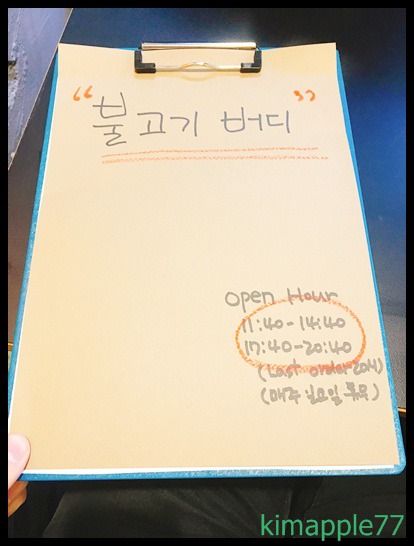 “ 불고기 버디 ”
Open Hour
11:40-14:40
17:40-20:40
(Last order 20시)
(매주 일요일 휴무)
kimapple77